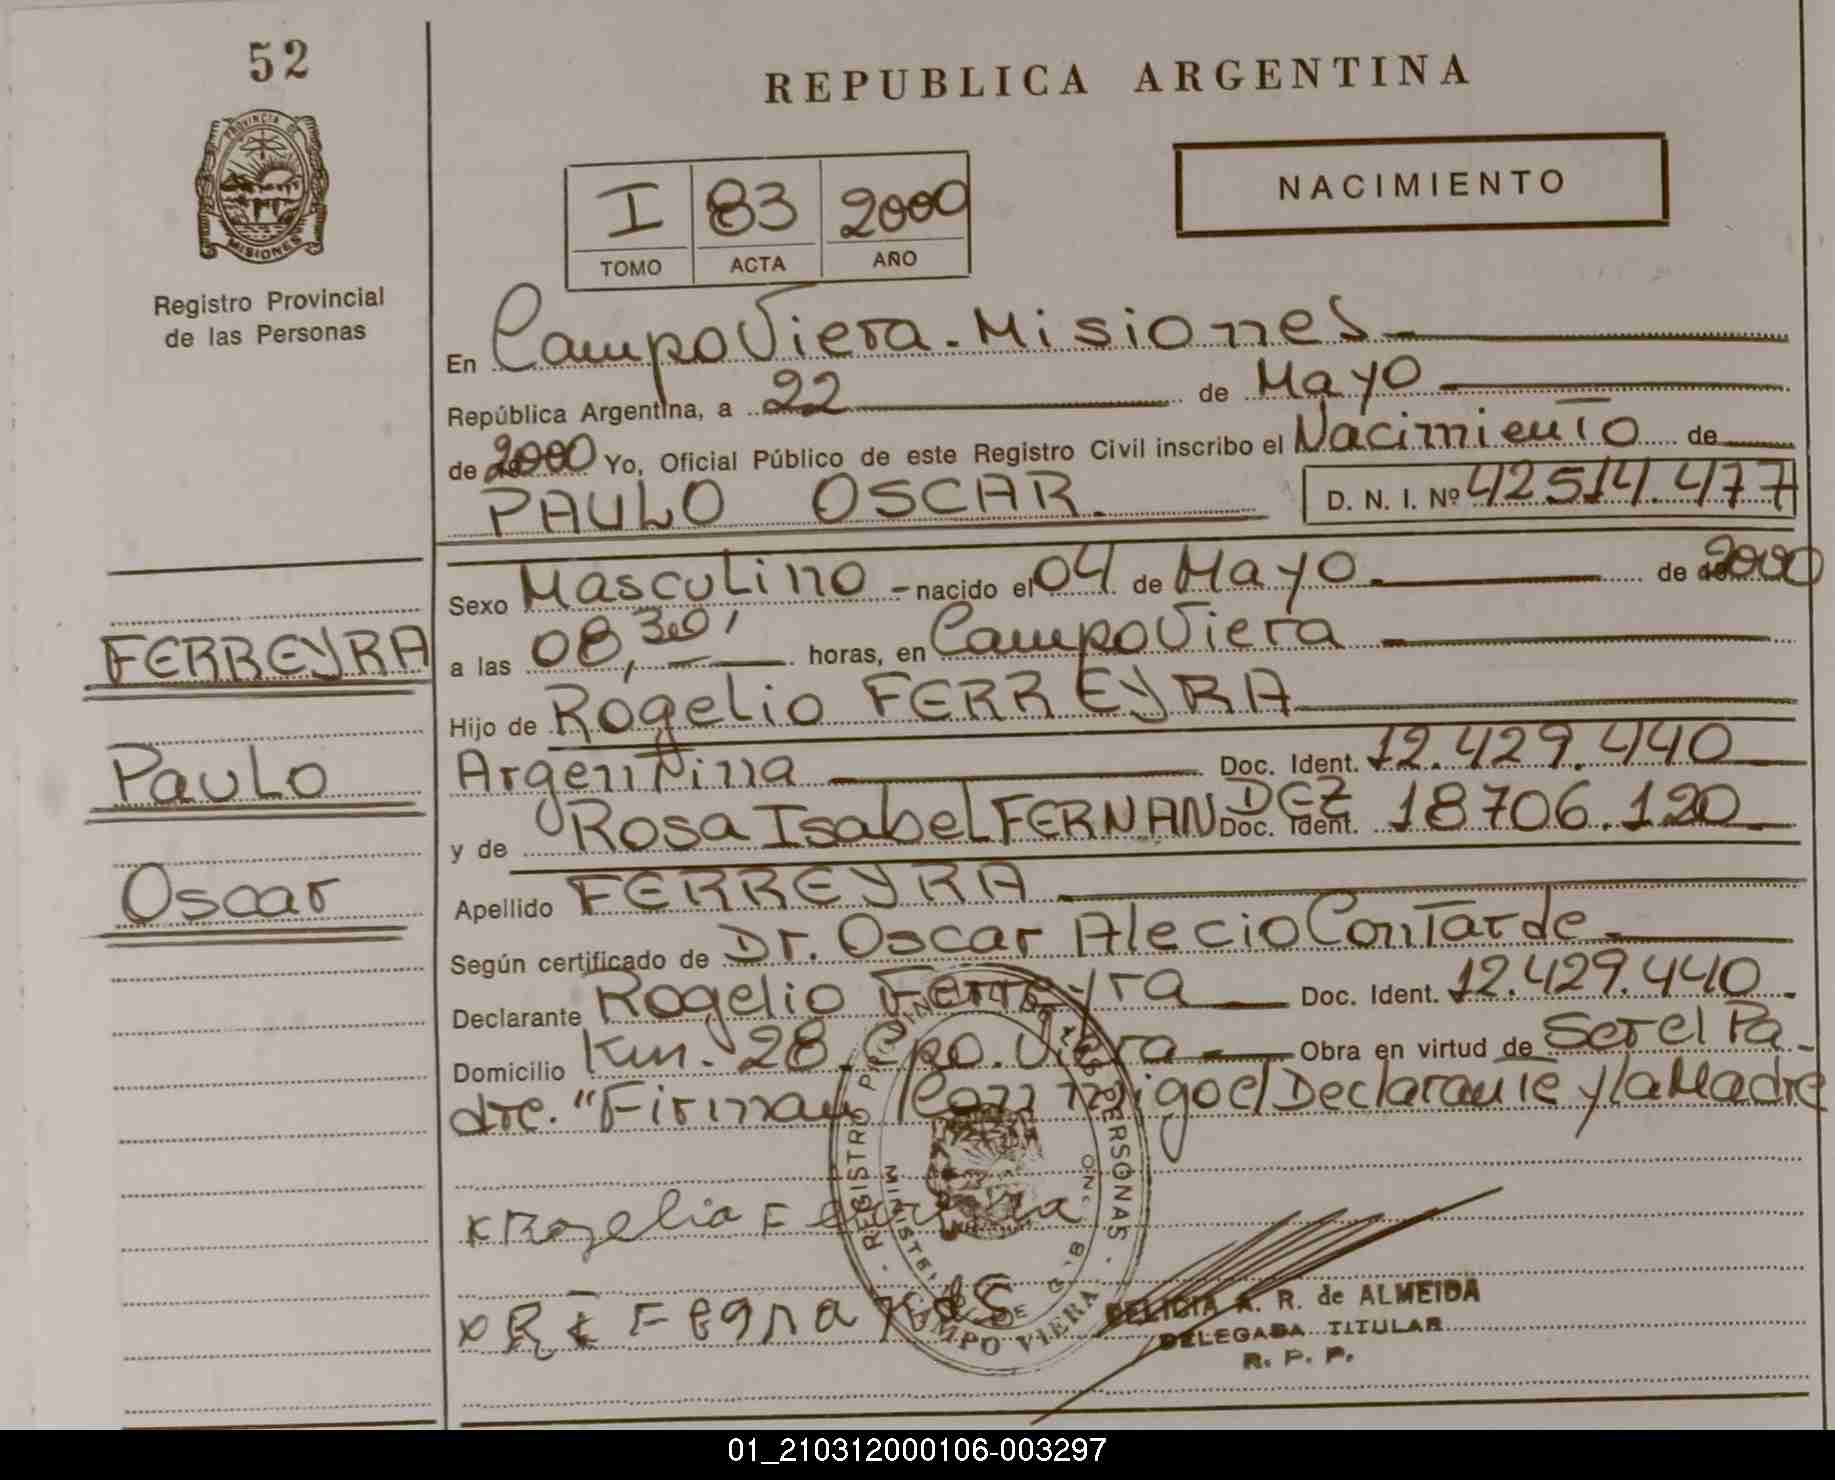 52
REPUBLICA ARGENTINA
PROVINCIA DE
MISIONES
Registro Provincial
de las Personas
NACIMIENTO
I 83 2000
TOMO ACTA AÑO
En Campo Viera - Misiones
República Argentina, a 22 de Mayo
de 2000 Yo, Oficial Público de este Registro Civil inscribo el Nacimiento de
PAULO OSCAR. D. N. I. Nº 42514.477
Sexo Masculino - nacido el 04 de Mayo. de 2000
a las 08,30' horas, en Campo Viera
Hijo de Rogelio FERREYRA
Argentina Doc. Ident. 12.429.440
y de Rosa Isabel FERNANDEZ Doc. Ident. 18706.120
Apellido FERREYRA
Según certificado de Dr. Oscar Alecio Contarde
Declarante Rogelio Ferreyra Doc. Ident. 12.429.440
Domicilio Km. 28. Cpo. Viera Obra en virtud de Ser el Pa-
dre. "Firman Conmigo el Declarante y la Madre
FERREYRA
Paulo
Oscar
x Rogelio Ferreyra
x R I Fernandes
REGISTRO PROVINCIAL DE LAS PERSONAS
CAMPO VIERA
DELICIA A. R. de ALMEIDA
DELEGADA TITULAR
R. P. P.
01_210312000106-003297